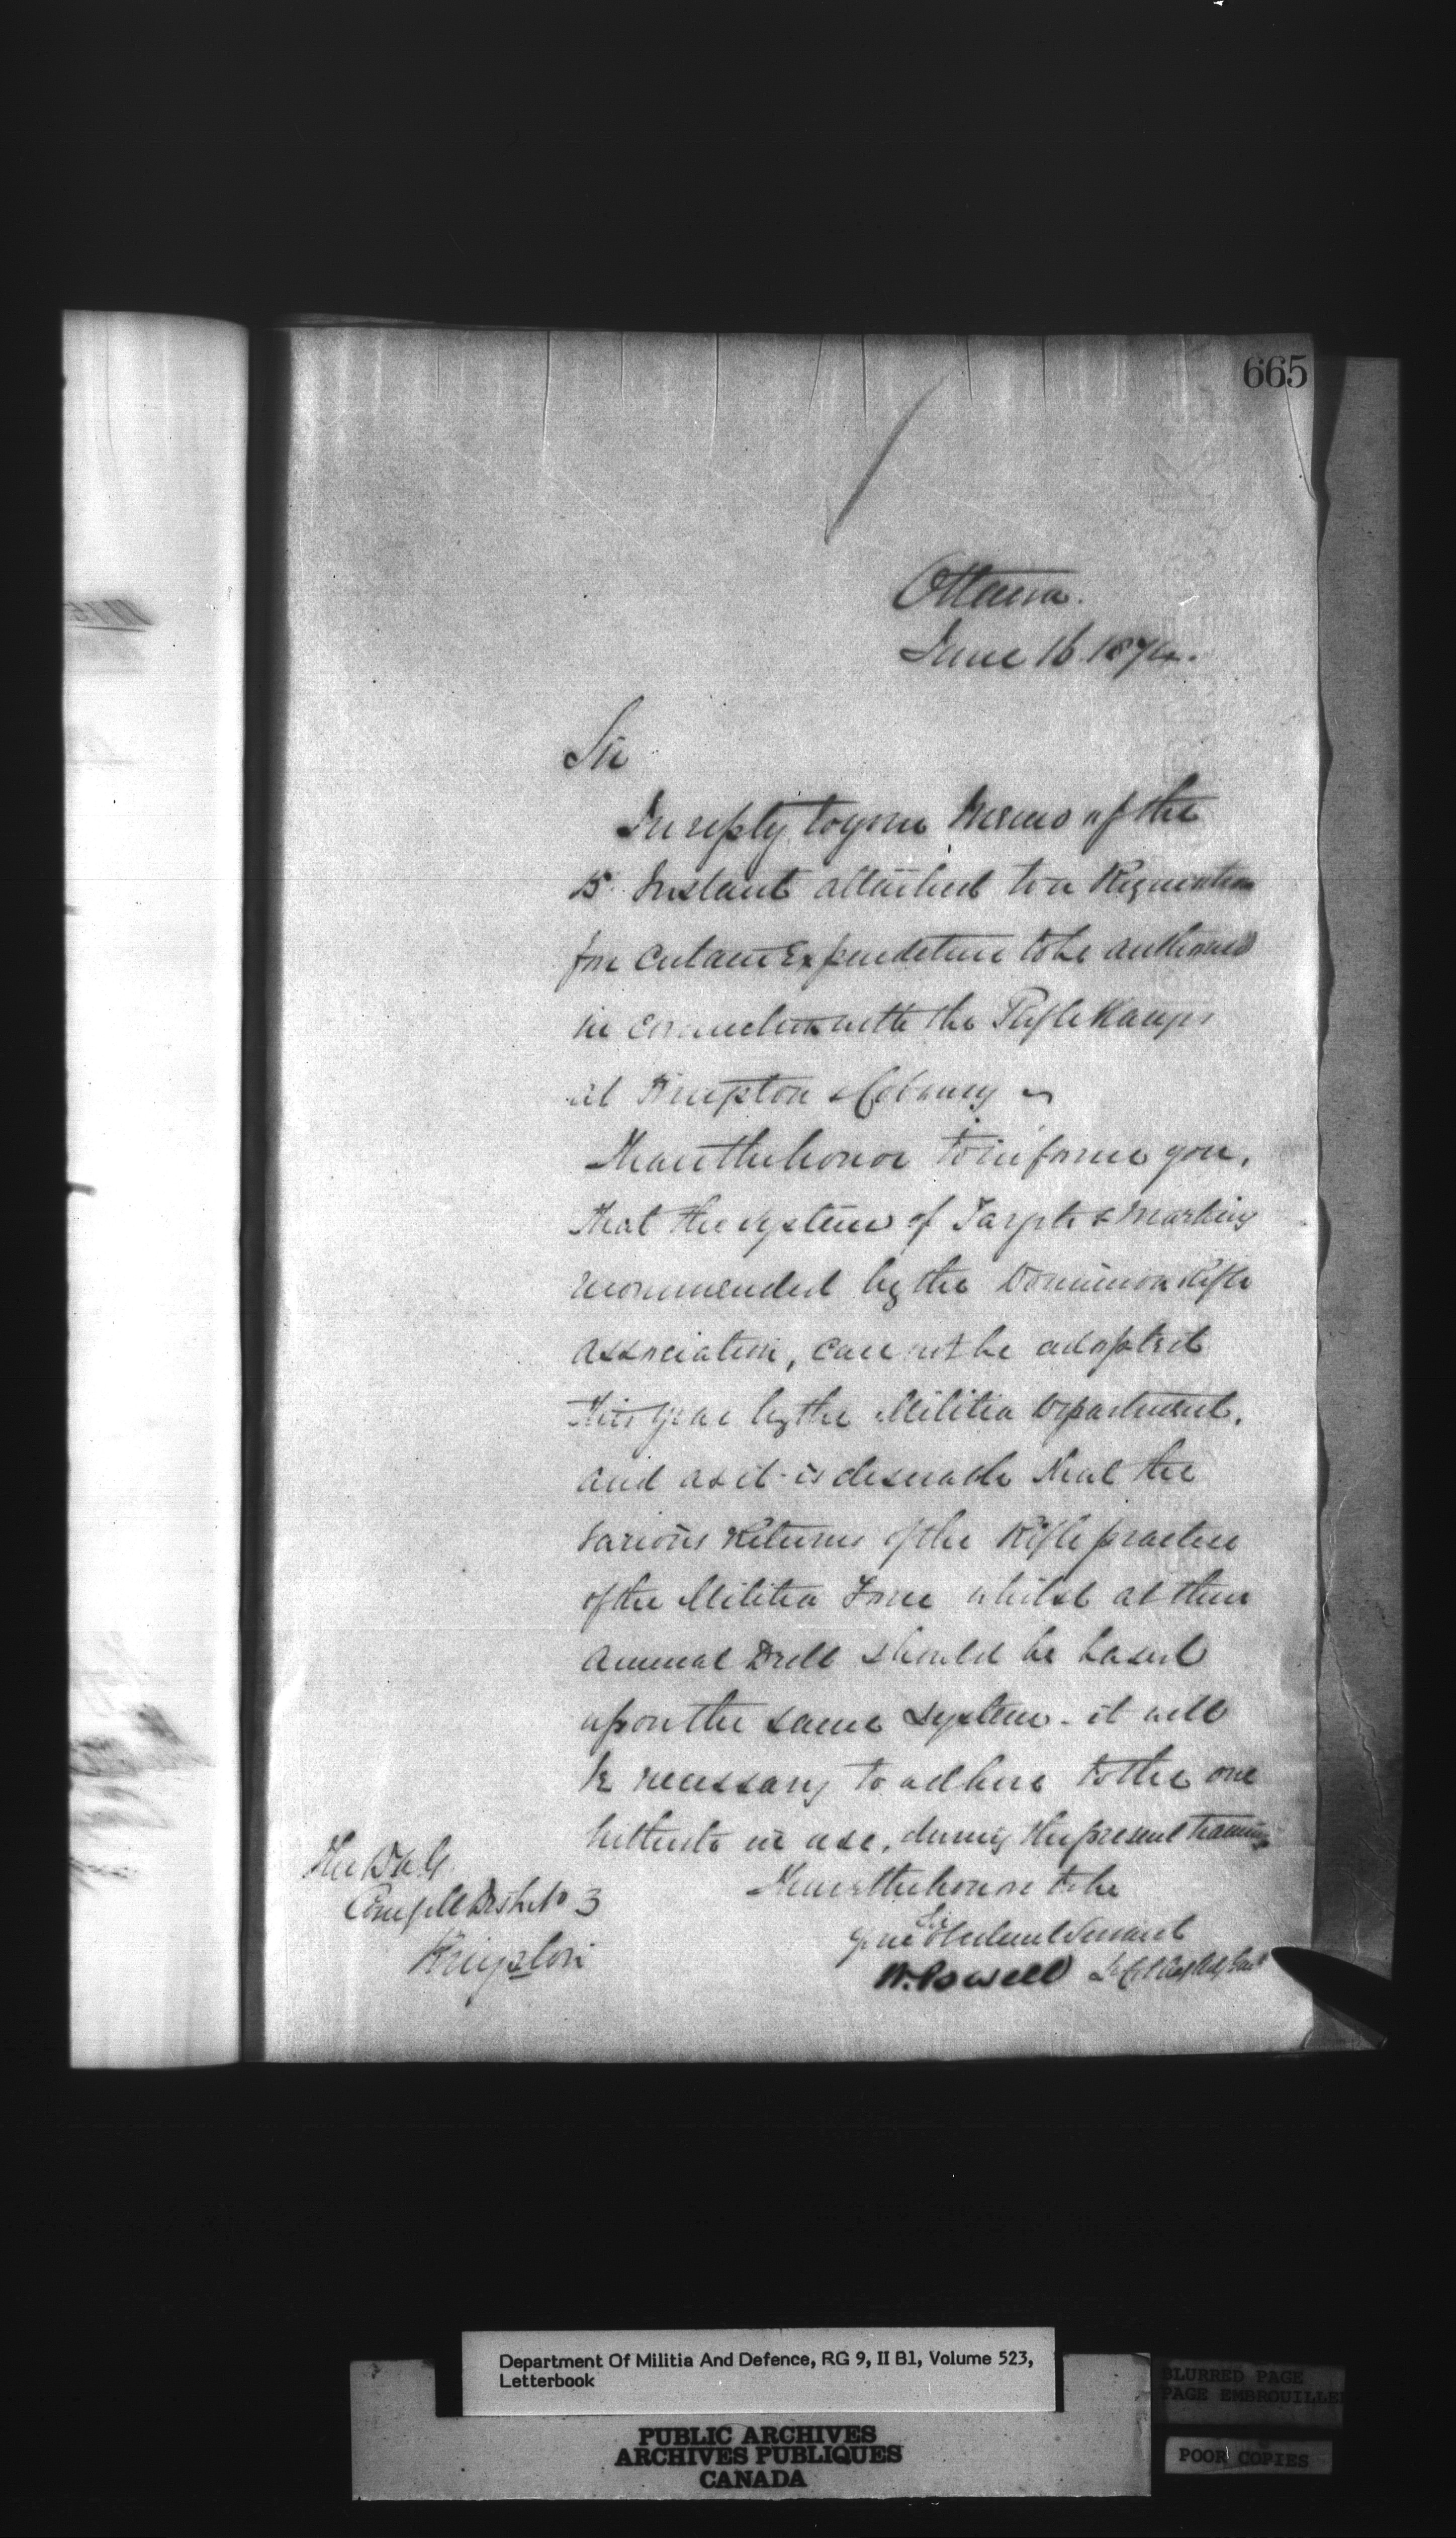 665
Ottawa.
June 16. 1874.
Sir
In reply to your Memo of the
15 Instant attached to a Requisition
for certain Expenditure to be authorized
in connection with the Rifle Ranges
at Kingston & Cobourg
I have the honor to inform you,
that the system of Targets & Marking
recommended by the Dominion Rifle
Association, can not be adopted
this year by the Militia Department,
and as it is desirable that the
various Returns of the Rifle practice
of the Militia Force whilst at their
Annual Drill should be based
upon the same system - it will
be necessary to adhere to the one
hitherto in use, during the present training
I have the honor to be
Sir
your Obedient Servant
W. Powell Lt Col
The D A G
Comg Mil Dist No 3
Kingston
Department Of Militia And Defence, RG 9, II B1, Volume 523,
Letterbook
PUBLIC ARCHIVES
ARCHIVES PUBLIQUES
CANADA
BLURRED PAGE
PAGE EMBROUILLE
POOR COPIES